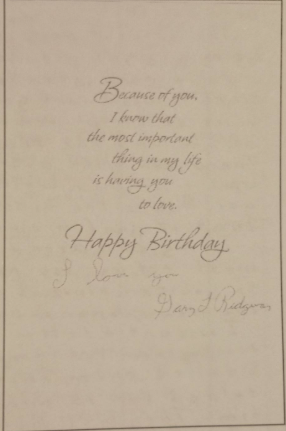 Because of you,
I know that
the most important
thing in my life
is having you
to love.
Happy Birthday
I love you
Gary L Ridgway